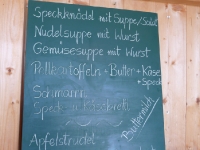 Speckknödel mit Suppe/Salat
Nudelsuppe mit Wurst
Gemüsesuppe mit Wurst
+ Butter + Käse
+ Speck
Schmarrn
Speck u. Käsebrettl
Buttermilch
Apfelstrudel